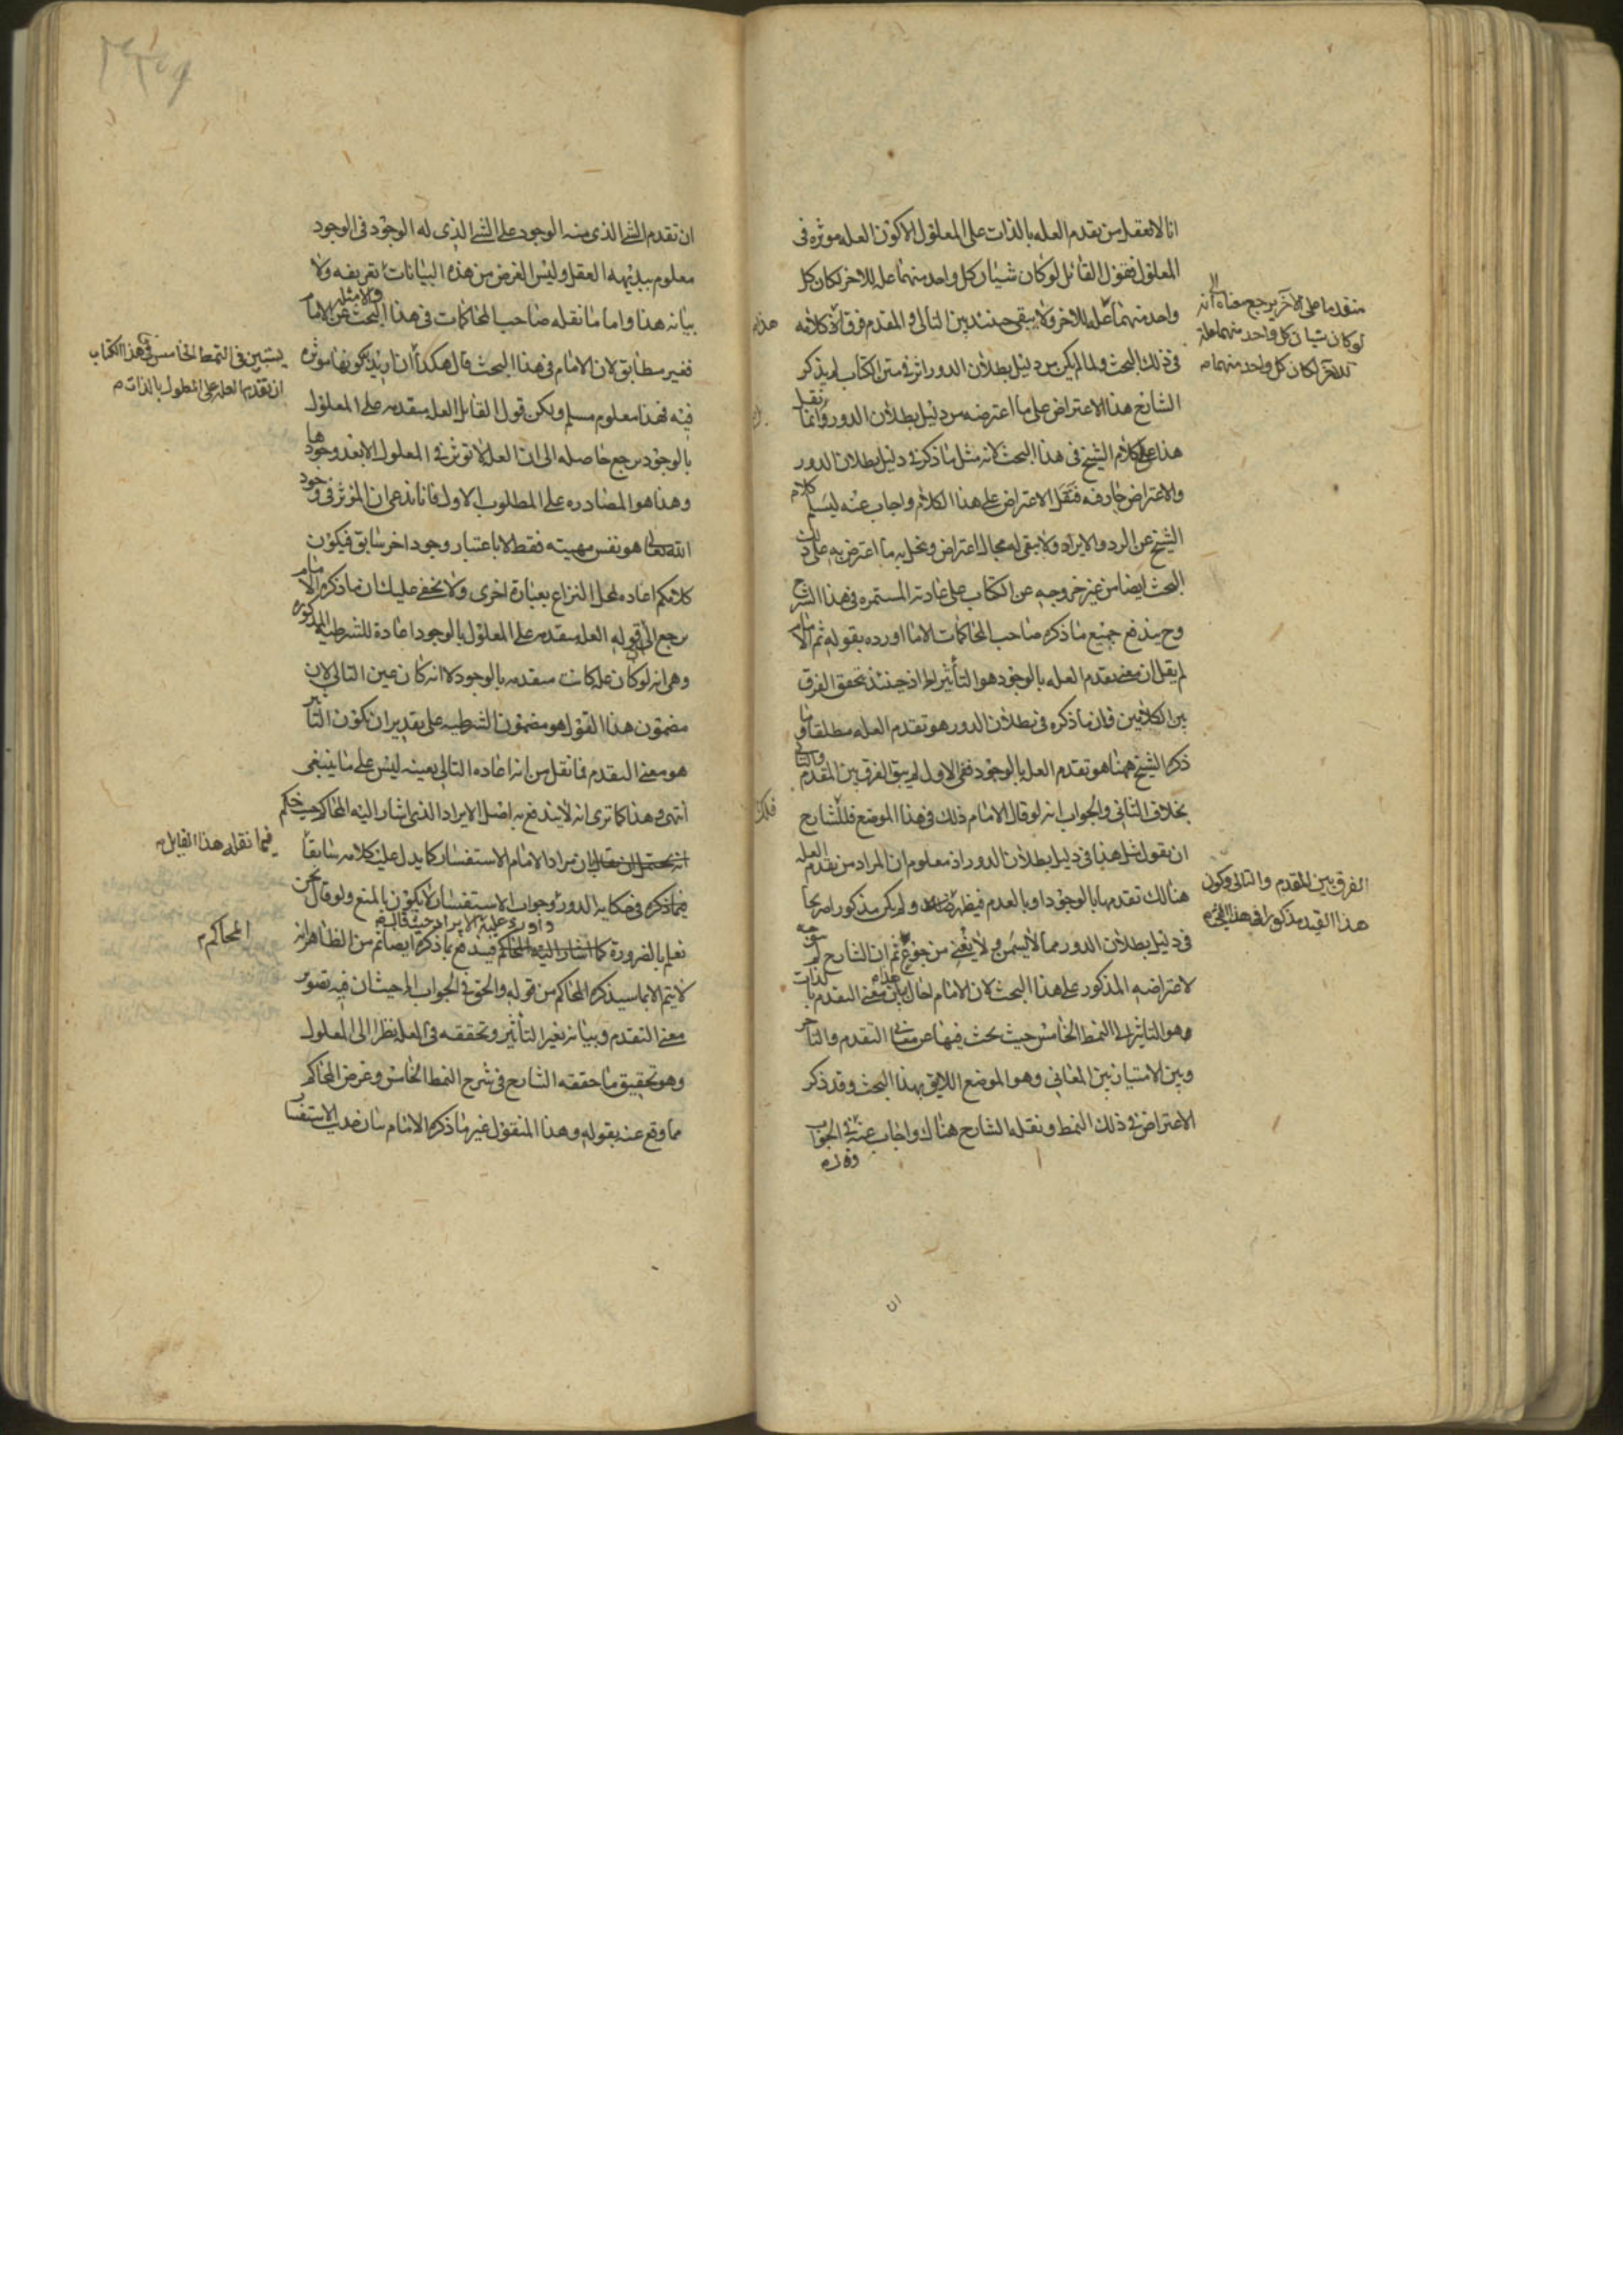 انا لا نعقل من تقدم العله بالذات على المعلول الا كون العله موثره فى
المعلول فقول القائل لو كان شيئان كل واحد منهما عله للاخر لكان كل
واحد منهما عله للاخر ولا يبقى حينئذ بين التالى والمقدم فرق هذا كلامه
فى ذلك البحث ولما لم يكن من دليل بطلان الدور اثر فى متن الكتاب لم يذكر
الشارح هذا الاعتراض على ما اعترضه من دليل بطلان الدور وانما نقل
هذا على كلام الشيخ فى هذا البحث لانه مثل ما ذكر فى دليل بطلان الدور
والاعتراض جار فيه فنقل الاعتراض على هذا الكلام واجاب عنه ليسلم كلام
الشيخ عن الرد والايراد ولا يبقى له مجال اعتراض وينحل به ما اعترض به على ذلك
البحث ايضا من غير خروجه عن الكتاب على عادته المستمره فى هذا الشرح
وح يندفع جميع ما ذكره صاحب المحاكمات الا ما اورده بقوله ثم الامام
لم يقل ان معنى تقدم العله بالوجود هو التأثير اذ حينئذ تحقق الفرق
بين الكلامين فان ما ذكره فى بطلان الدور هو تقدم العله مطلقا وما
ذكره الشيخ ههنا هو تقدم العله بالوجود ففى الاول لم يبق الفرق بين المقدم والتالى
بخلاف الثانى والجواب انه لو قال الامام ذلك فى هذا الموضع فللشارح
ان يقول مثل هذا فى دليل بطلان الدور اذ معلوم ان المراد من تقدم العله
هنالك تقدمها بالوجود او بالعدم فيظهر ولو لم يكن مذكورا صريحا
فى دليل بطلان الدور مما لا يسمن ولا يغنى من جوع ثم ان الشارح لم
لاعتراضه المذكور على هذا البحث لان الامام احال بيان معنى التقدم بالذات
وهو التاثير الى النمط الخامس حيث بحث فيها عن معانى التقدم والتاخر
وبين الامتياز بين المعانى وهو الموضع اللايق بهذا البحث وقد ذكر
الاعتراض فى ذلك النمط ونقله الشارح هناك واجاب عنه فى الجواب
متقدما على الآخر يرجع معناه الى انه
لو كان شيئان كل واحد منهما علة
للآخر لكان كل واحد منهما م
الفرق بين المقدم والتالى وكون
هذا القيد مذكورا فى هذا البحث م
ان تقدم الشئ الذى منه الوجود على الشئ الذى له الوجود فى الوجود
معلوم ببديهه العقل وليس الغرض من هذه البيانات تعريفه ولا
بيانه هذا واما ما نقله صاحب المحاكمات فى هذا البحث عن الامام
فغير مطابق لان الامام فى هذا البحث قال هكذا ان اريد بكونها موثره
فيه فهذا معلوم مسلم ولكن قول القائل العله متقدمه على المعلول
بالوجود يرجع حاصله الى ان العله لا توثر فى المعلول الا بعد وجودها
وهذا هو المصادره على المطلوب الاول فانا ندعى ان المؤثر فى وجود
الله تعالى هو نفس مهيته فقط لا باعتبار وجود اخر سابق فيكون
كلامكم اعاده لمحل النزاع بعبارة اخرى ولا يخفى عليك ان ما ذكره الامام
يرجع الى قوله العله متقدمه على المعلول بالوجود اعادة للشرطيه المذكوره
وهى انه لو كان عله كانت متقدمه بالوجود لا انه كان عين التالى لان
مضمون هذا القول هو مضمون الشرطيه على تقدير ان يكون التأثير
هو معنى التقدم فما نقل من انه اعاده التالى بعينه ليس على ما ينبغى
انتهى وهذا كما ترى انه لا يندفع به اصل الايراد الذى اشار اليه المحاكم
بان مراد الامام الاستفسار كما يدل عليه كلامه سابقا
فيما ذكره فى حكايه الدور وجواب الاستفسار لا يكون بالمنع ولو قال نحن
نعلم بالضرورة كما اشار اليه المحاكم فيندفع بما ذكره ايضا ثم من الظاهر انه
لا يتم الا بما سيذكره المحاكم من قوله والحق فى الجواب الى حيث ان فيه تصوير
معنى التقدم وبيانه بغير التأثير وتحققه فى العله نظرا الى المعلول
وهو تحقيق ما حققه الشارح فى شرح النمط الخامس وغرض المحاكم
مما وقع عنه بقوله وهذا المنقول غير ما ذكره الامام
يستبين فى النمط الخامس فى هذا الكتاب
ان تقدم العله على المعلول بالذات م
فيما نقله هذا القايل م
المحاكم م